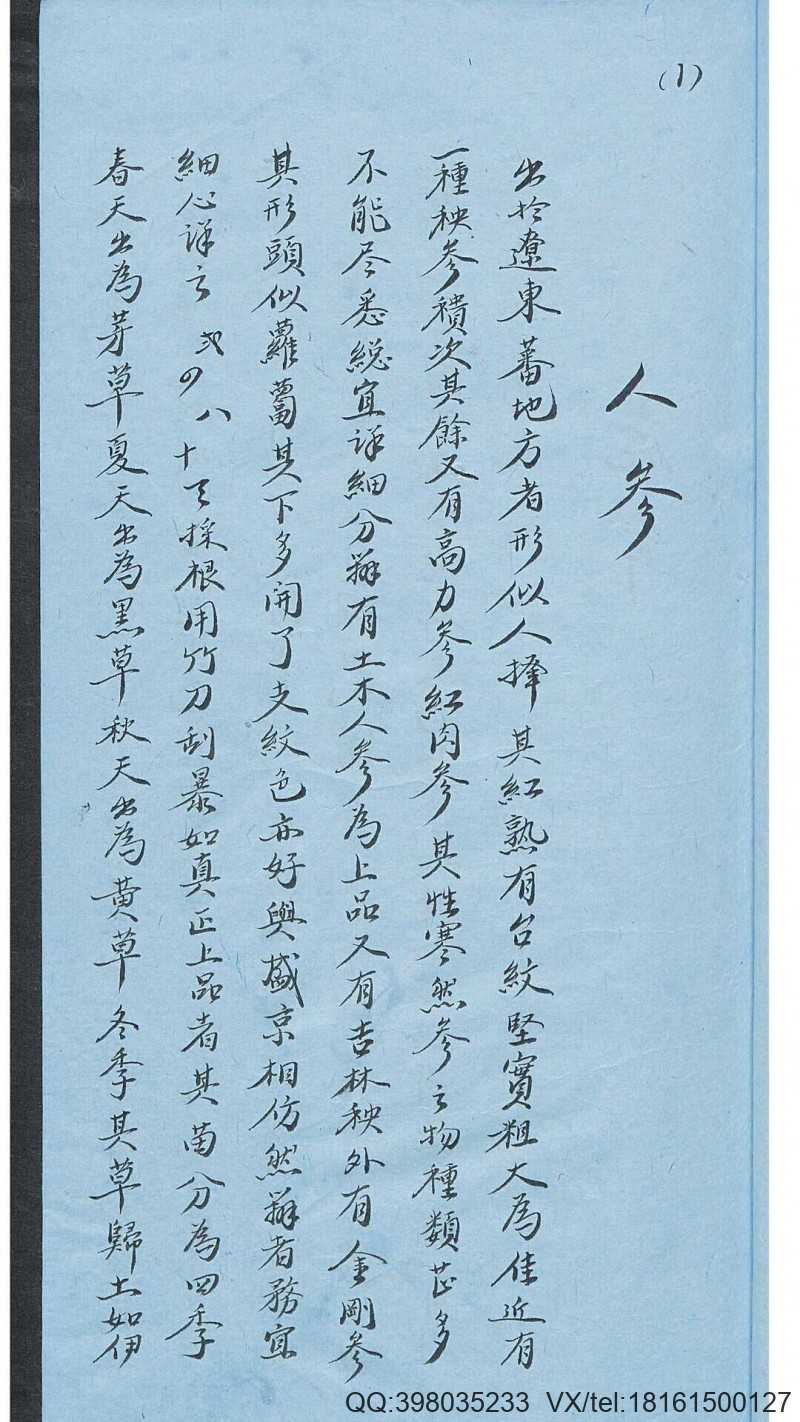 (1)
人參
出於遼東蕃地方者形似人擇其紅熟有台紋堅實粗大為佳近有
一種秧參積次其餘又有高力參紅肉參其性寒然參之物種類甚多
不能尽悉総宜詳細分辦有土木人參為上品又有吉林秧外有金剛參
其形頭似蘿蔔其下多開了支紋色亦好與盛京相仿然辦者務宜
細心詳之 八十 採根用竹刀刮暴如真正上品者其苗分為四季
春天出為芽草夏天出為黑草秋天出為黄草冬季其草歸土如伊
QQ:398035233 VX/tel:18161500127